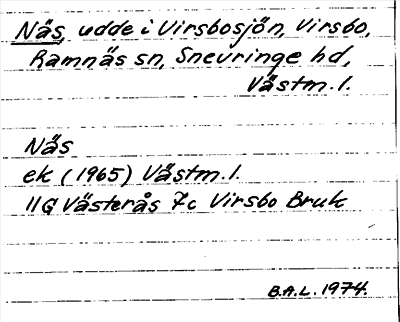 Näs, udde i Virsbosjön, Virsbo,
Ramnäs sn, Snevringe hd,
Västm. l.
Näs
ek (1965) Västm. l.
11G Västerås 7c Virsbo Bruk
B.A.L. 1974.